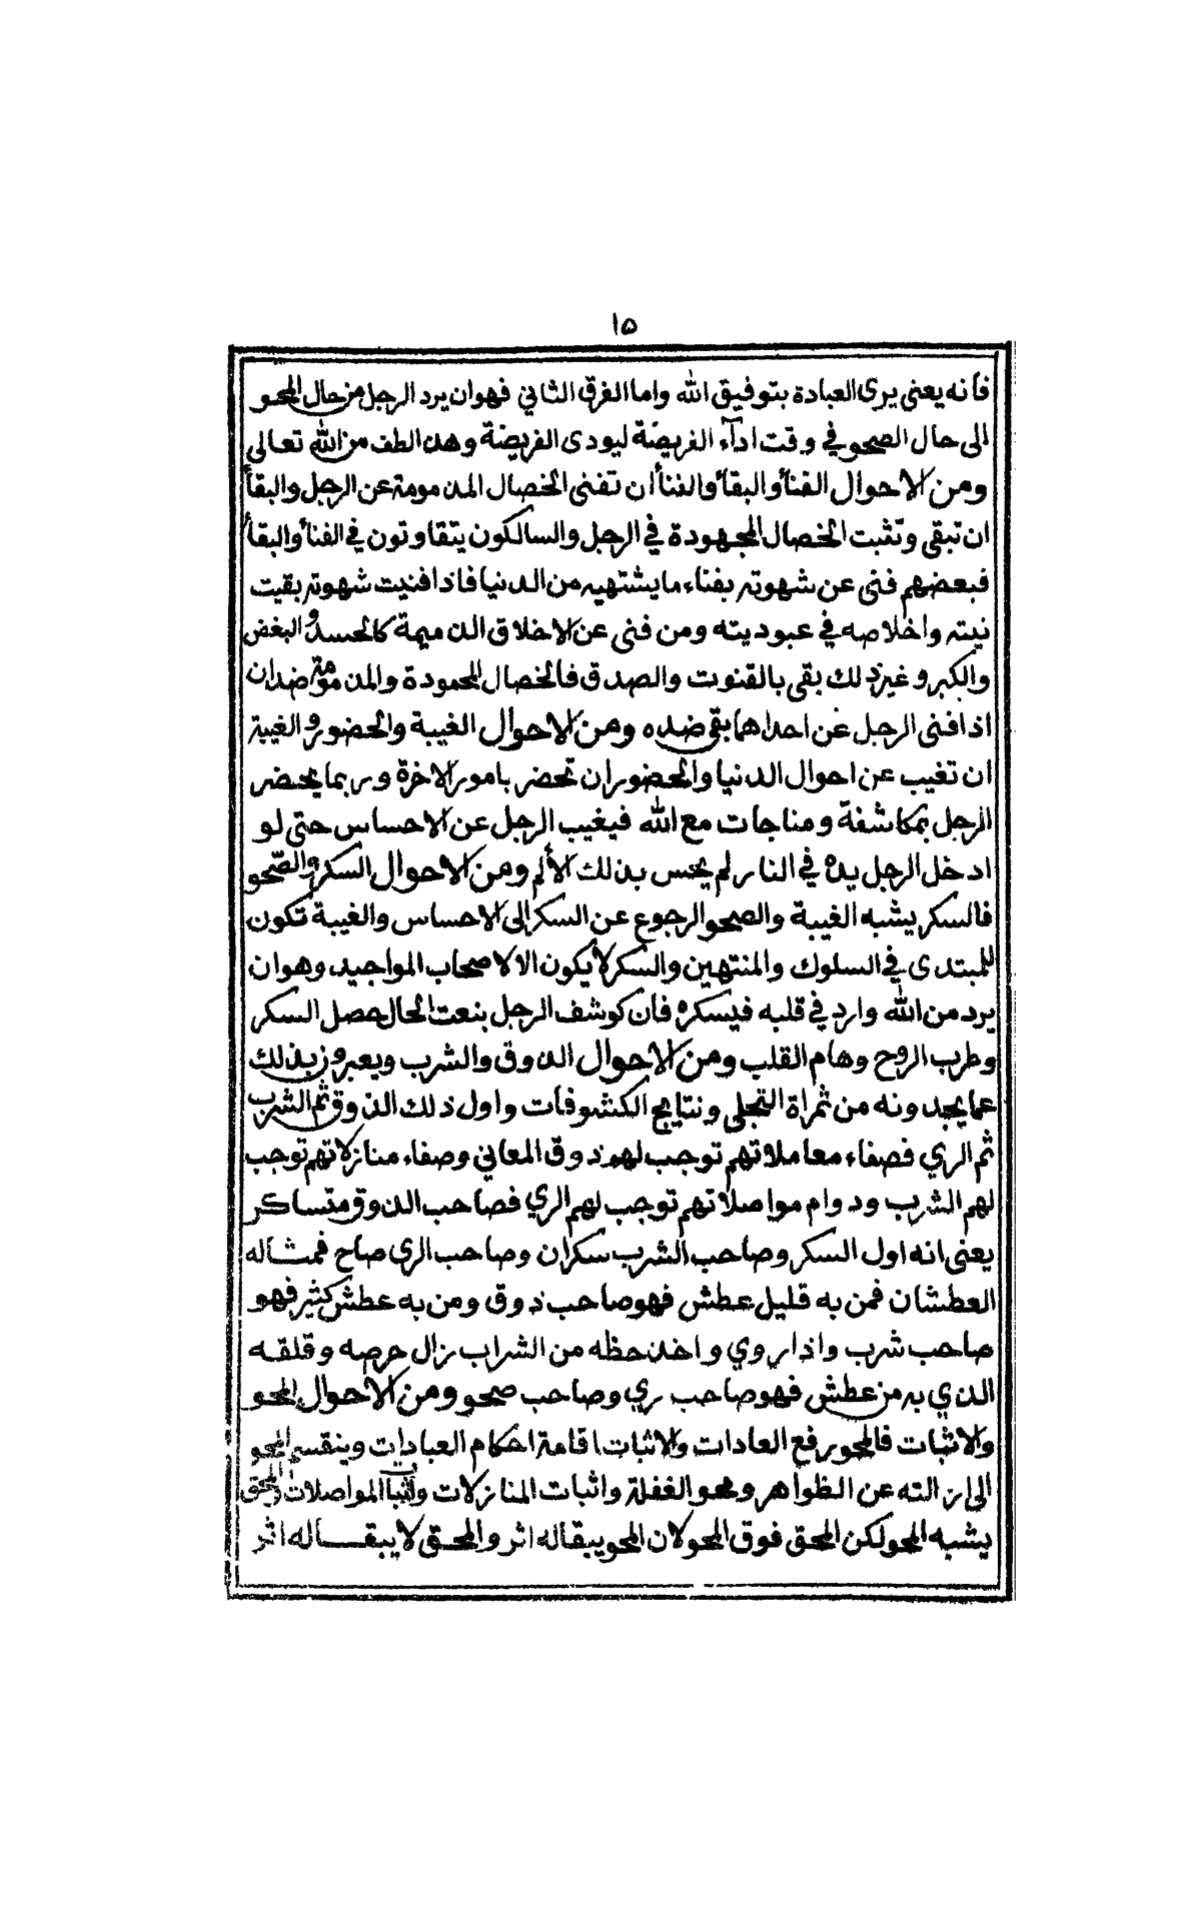 ١٥
فأنه يعنى يرى العبادة بتوفيق الله واما الفرق الثاني فهو ان يرد الرجل من حال المحو
الى حال الصحو في وقت ادآء الفريضة ليودى الفريضة وهذا لطف من الله تعالى
ومن الاحوال الفنأ والبقأ والفنأ ان تفنى الخصال المذمومة عن الرجل والبقأ
ان تبقى وتثبت الخصال المجهودة في الرجل والسالكون يتقاوتون في الفنأ والبقأ
فبعضهم فنى عن شهوته بفناء ما يشتهيه من الدنيا فاذا فنيت شهوته بقيت
نيته واخلاصه في عبوديته ومن فنى عن الاخلاق الذميمة كالحسد والبغض
والكبر وغير ذلك بقى بالقنوت والصدق فالخصال المحمودة والمذمومة ضدان
اذا فنى الرجل عن احداهما بقى ضده ومن الاحوال الغيبة والحضور والغيبة
ان تغيب عن احوال الدنيا والحضور ان تحضر بامور الاخرة وربما يحضر
الرجل بمكاشفة ومناجات مع الله فيغيب الرجل عن الاحساس حتى لو
ادخل الرجل يده في النار لم يحس بذلك الألم ومن الاحوال السكر والصّحو
فالسكر يشبه الغيبة والصحو الرجوع عن السكر الى الاحساس والغيبة تكون
للمبتدى في السلوك والمنتهين والسكر لا يكون الا لاصحاب المواجيد وهو ان
يرد من الله وارد في قلبه فيسكره فان كوشف الرجل بنعت الحال حصل السكر
وطرب الروح وهام القلب ومن الاحوال الذوق والشرب ويعبرون بذلك
عما يجدونه من ثمراة التجلى ونتايج الكشوفأت واول ذلك الذوق ثم الشرب
ثم الري فصفاء معاملاتهم توجب لهم ذوق المعاني وصفاء منازلاتهم توجب
لهم الشرب ودوام مواصلاتهم توجب لهم الري فصاحب الذوق متساكر
يعنى انه اول السكر وصاحب الشرب سكران وصاحب الرى صاح فمثاله
العطشان فمن به قليل عطش فهو صاحب ذوق ومن به عطش كثير فهو
صاحب شرب واذا روي واخذ حظه من الشراب زال حرصه وقلقه
الذي به من عطش فهو صاحب ري وصاحب صحو ومن الاحوال المحو
والاثبات فالمحو رفع العادات والاثبات اقامة احكام العبادات وينقسم المحو
الى ازالته عن الظواهر ومحو الغفلة واثبات المنازلات واثبات المواصلات والمحق
يشبه المحو لكن المحق فوق المحو لان المحو يبقا له اثر والمحق لا يبقا له اثر